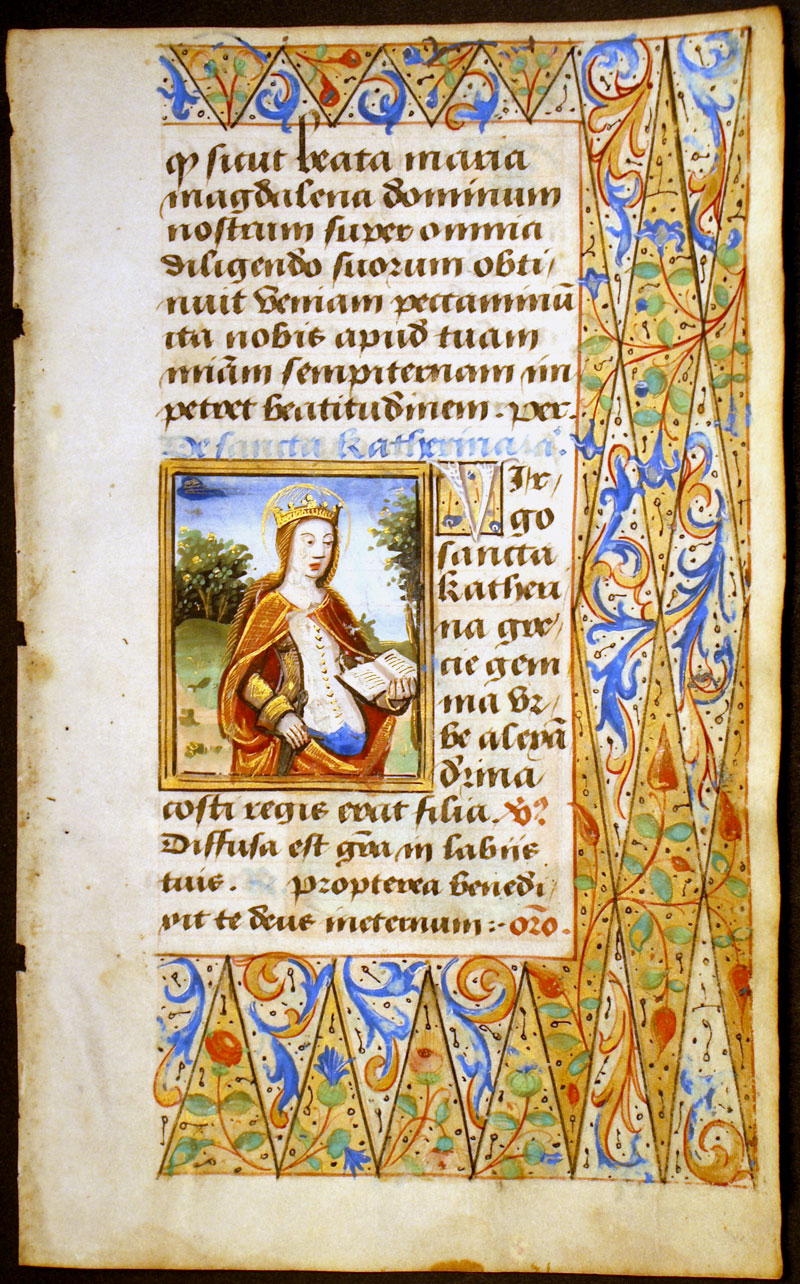 qꝫ sicut beata maria
magdalena dominum
nostrum super omnia
diligendo suorum obti⸗
nuit veniam peccaminū
ita nobis apud tuam
miām sempiternam im
petret beatitudinem. per.
De sancta katherina. aͣ.
Vir⸗
go
sancta
katheri
na gre⸗
cie gem
ma vr⸗
be alexā
drina
costi regis erat filia. ℣?
Diffusa est grā in labiis
tuis. Propterea benedi
xit te deus ineternum:- orō.